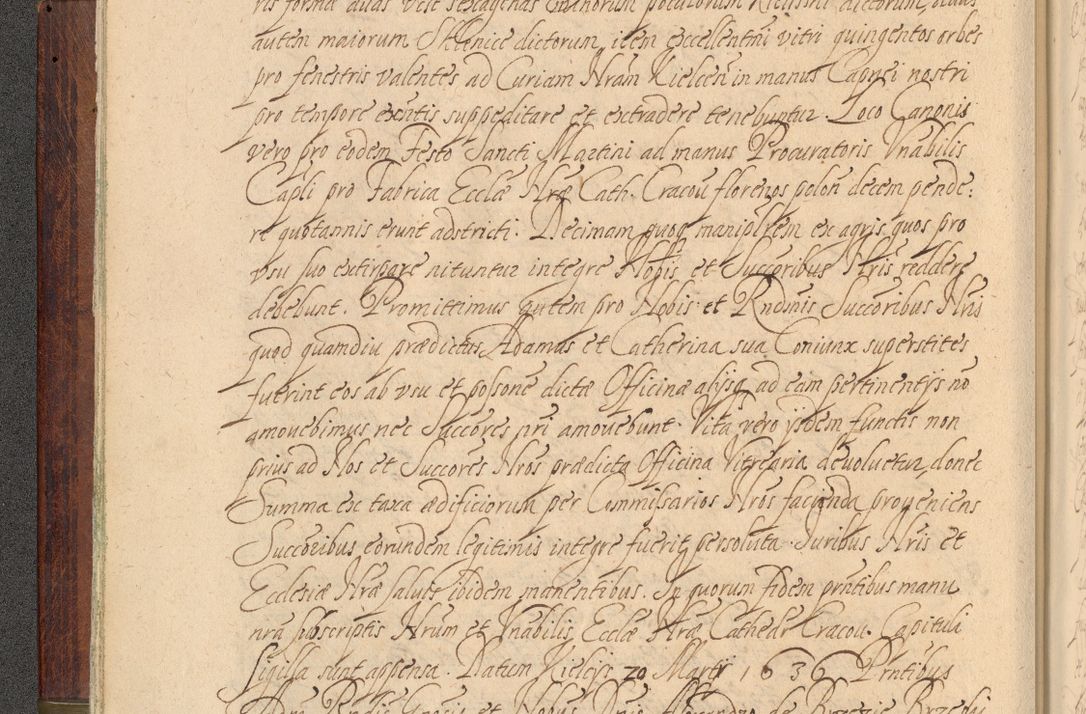 autem maiorum Sklenice dictorum, item excellentni vitri quingentos orbes
pro fenestris valentes ad Curiam Nram Kielcen in manus Capnei nostri
pro tempore exntis suppeditare et extradere tenebuntur. Loco Canonis
vero pro eodem Festo Sancti Martini ad manus Procuratoris Vnabilis
Capli pro Fabrica Ecclæ Nræ Cath. Cracou florenos polon decem pende:
re quotannis erunt adstricti. Decimam quoq maniplrem ex agris quos pro
vsu suo extirpare nituntur integre Nobis et Succoribus Nris reddere
debebunt. Promittimus autem pro Nobis et Rndmis Succoribus Nris
quod quamdiu prædictus Adamus et Catherina sua Coniunx superstites
fuerint eos ab vsu et possone dictæ Officinæ alijsq ad eam pertinentijs no
amouebimus nec Succores nri amouebunt. Vita vero ijsdem functis non
prius ad Nos et Succores Nros prædicta Officina Vitrearia deuoluetur, donec
Summa ex taxa ædificiorum per Commissarios Nros facienda proueniens
Succoribus eorundem legitimis integre fuerit persoluta. Iuribus Nris et
Ecclesiæ Nræ saluis ibidem manentibus. In quorum fidem prntibus manu
nra subscriptis Nrum et Vnabilis Ecclæ Nræ Cathedr Cracou. Capituli
Sigilla sunt appensa. Datum Kielcijs 20 Martij 1636 Prntibus